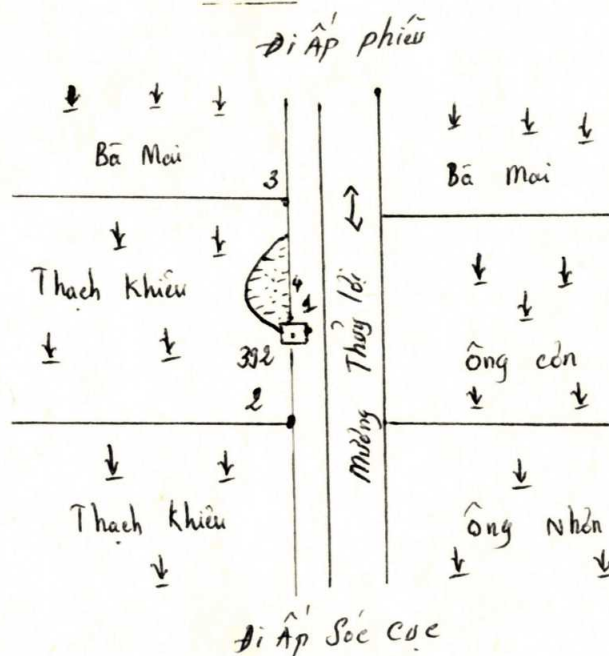 Đi Ấp phiếu
Bà Mai
Bà Mai
3
Thạch Khiêu
4
1
392
2
Mương Thủy lợi
Ông cón
Thạch Khiêu
Ông Nhơn
Đi Ấp Sóc Cục